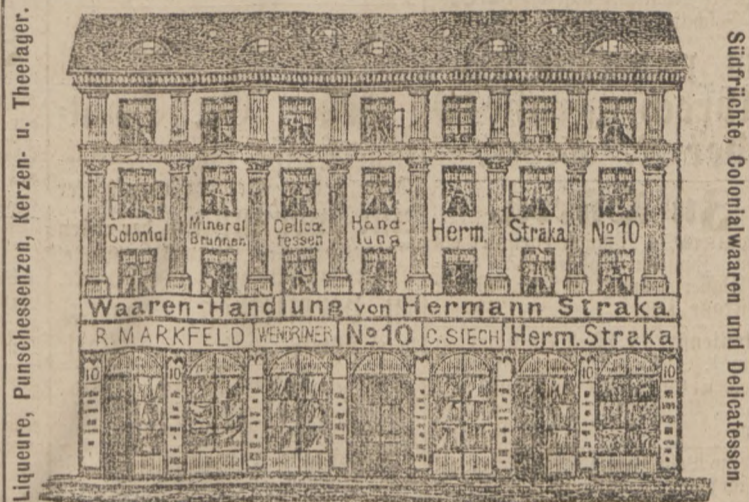 Liqueure, Punschessenzen, Kerzen- u. Theelager.
Colonial Mineral Brunnen Delica- tessen Hand- lung Herm. Straka No 10
Waaren-Handlung von Hermann Straka
R. MARKFELD WENDRINER No 10 C. SIECH Herm. Straka
10 10 10 10
Südfrüchte, Colonialwaaren und Delicatessen.